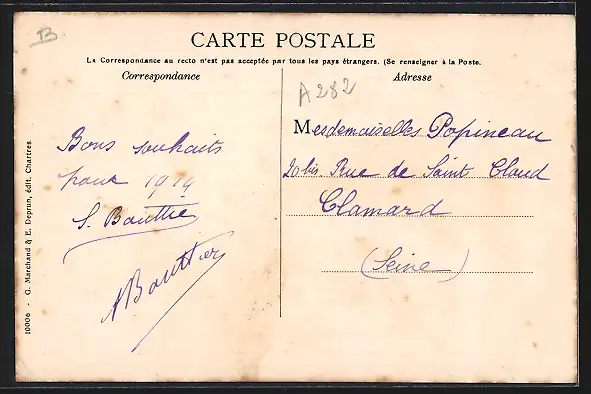 B
CARTE POSTALE
La Correspondance au recto n'est pas acceptée par tous les pays étrangers. (Se renseigner à la Poste.
Correspondance
Adresse
A 282
Bons souhaits
pour 1914
S. Bouttier
Bouttier
Mesdemoiselles Popineau
20 bis. Rue de Saint Cloud
Clamard
(Seine)
10006 - G. Marchand & E. Deprun, édit. Chartres